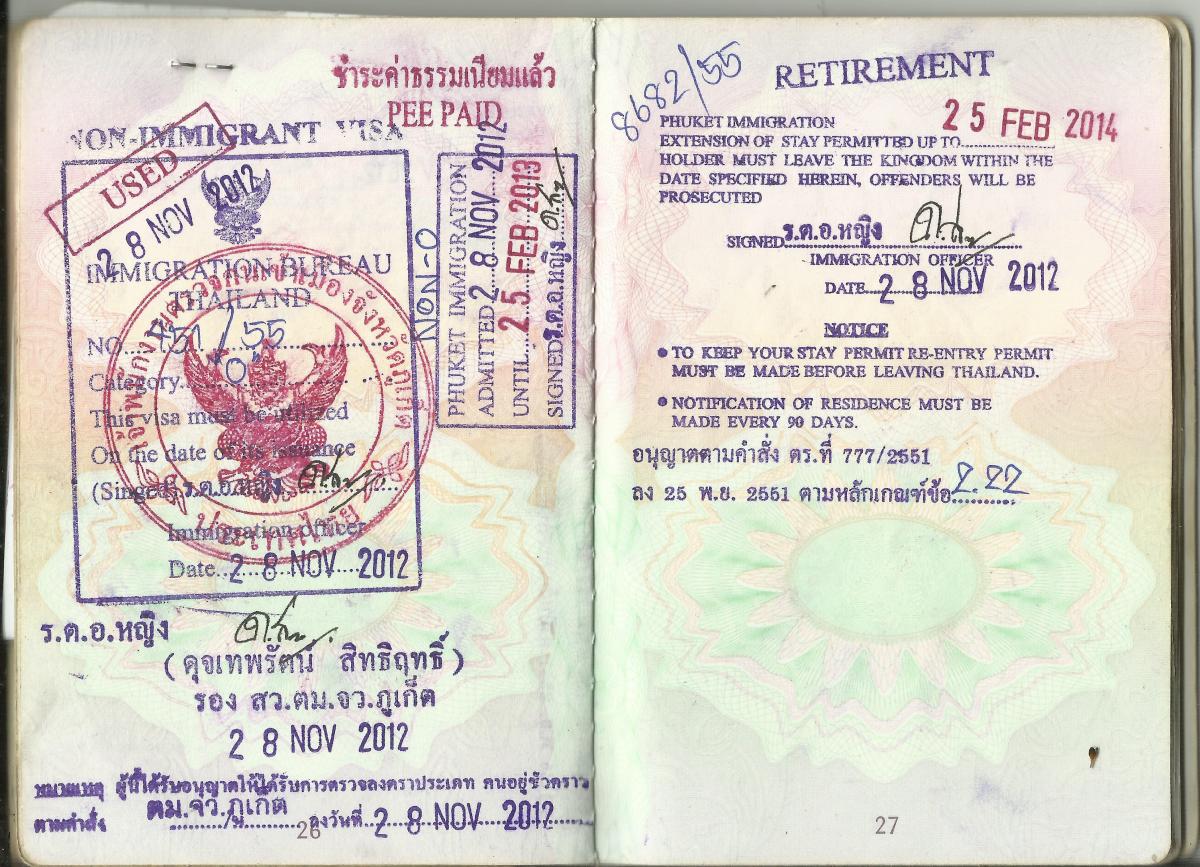 ชำระค่าธรรมเนียมแล้ว
PEE PAID
NON-IMMIGRANT VISA
USED
28 NOV 2012
IMMIGRATION BUREAU
THAILAND
NO....151/55
Category...."O"
This visa must be utilized
On the date of its issuance
(Singed) ร.ต.อ.หญิง
Immigration officer
Date...28 NOV 2012
ประเทศไทย
NON-O
PHUKET IMMIGRATION
ADMITTED 28 NOV 2012
UNTIL...25 FEB 2013
SIGNED ร.ต.อ.หญิง
ร.ต.อ.หญิง
(ดุจเทพรัตน์ สิทธิฤทธิ์)
รอง สว.ตม.จว.ภูเก็ต
28 NOV 2012
หมายเหตุ ผู้นี้ได้รับอนุญาตให้ได้รับการตรวจลงตราประเภท คนอยู่ชั่วคราว
ตามคำสั่ง ตม.จว.ภูเก็ต ลงวันที่ 28 NOV 2012
26
8682/55
RETIREMENT
PHUKET IMMIGRATION
EXTENSION OF STAY PERMITTED UP TO 25 FEB 2014
HOLDER MUST LEAVE THE KINGDOM WITHIN THE
DATE SPECIFIED HEREIN, OFFENDERS WILL BE
PROSECUTED
SIGNED ร.ต.อ.หญิง
IMMIGRATION OFFICER
DATE 28 NOV 2012
NOTICE
• TO KEEP YOUR STAY PERMIT RE-ENTRY PERMIT
MUST BE MADE BEFORE LEAVING THAILAND.
• NOTIFICATION OF RESIDENCE MUST BE
MADE EVERY 90 DAYS.
อนุญาตตามคำสั่ง ตร.ที่ 777/2551
ลง 25 พ.ย. 2551 ตามหลักเกณฑ์ข้อ 2.22
27